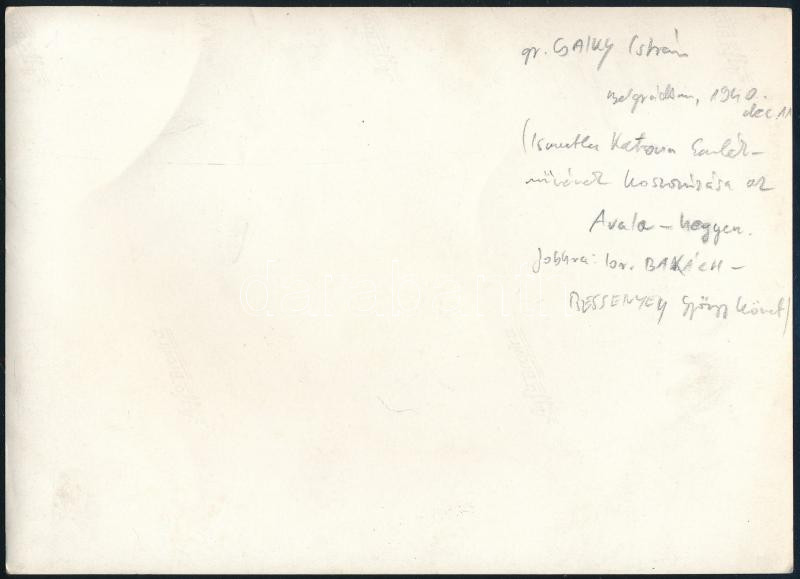 gr. CSÁKY István
Belgrádban, 1940.
dec. 11
(Ismeretlen Katona Emlék-
művének koszorúzása az
Avala-hegyen.
Jobbra: br. BAKÁCH-
BESSENYEY György követ)